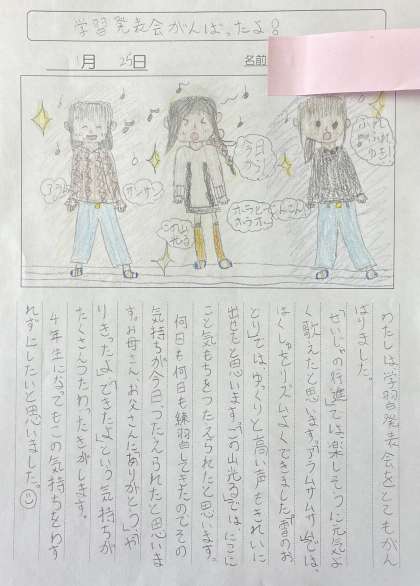 学習発表会がんばったよ!
1月 25日
名前
アラム
サムサム
今日から
これ山光る
ホーラヒーホラホー
こんこん
ふれふれゆき
わたしは学習発表会をとてもがん
ばりました。
「せいじゃの行進」では楽しそうに元気よ
く歌えたと思います。「アラムサムサム」では、
はくしゅをリズムよくできました。「雪のお
どり」ではゆっくりと高い声もきれいに
出せたと思います。「この山光る」ではにこに
こと気もちをつたえられたと思います。
何日も何日も練習してきたのでその
気持ちが今日つたえられたと思いま
す。お母さんお父さんに「ありがとう」や「
りきったよ」「できたよ」という気持ちが
たくさんつたわったきがします。
4年生になってもこの気持ちをわす
れずにしたいと思いました。